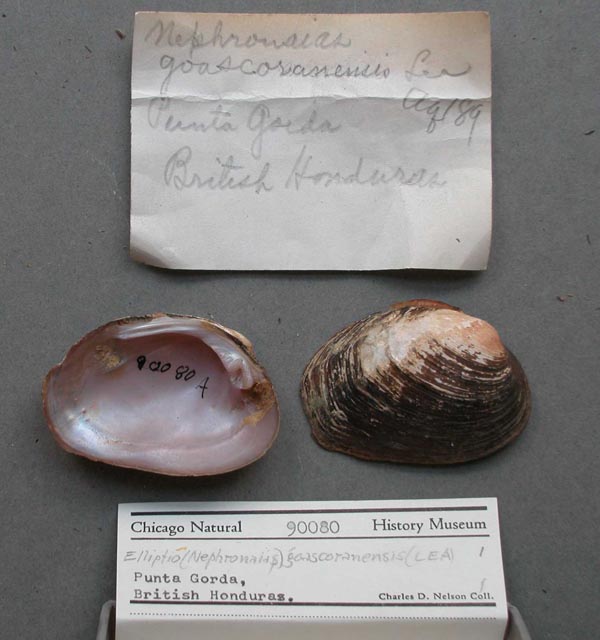 Nephronaias
goascoranensis Lea
Aq189
Punta Gorda
British Honduras
90080 A
Chicago Natural 90080 History Museum
Elliptio (Nephronaias) goascoranensis (LEA) 1
Punta Gorda,
British Honduras. Charles D. Nelson Coll.